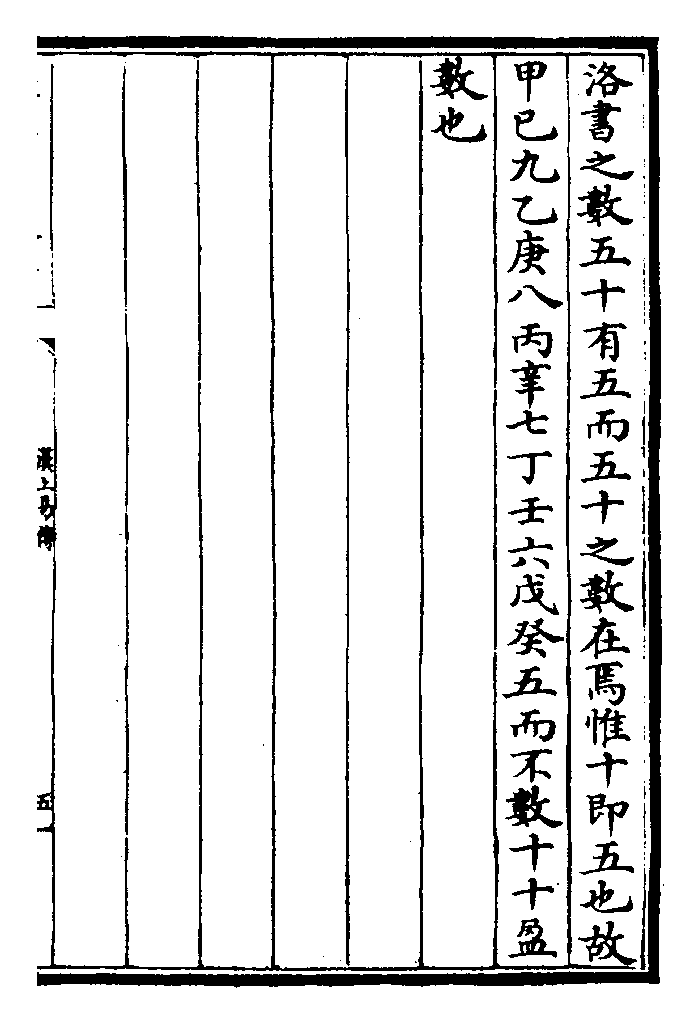 洛書之數五十有五而五十之數在焉惟十即五也故
甲已九乙庚八丙辛七丁壬六戊癸五而不數十十盈
數也
漢上易傳
五